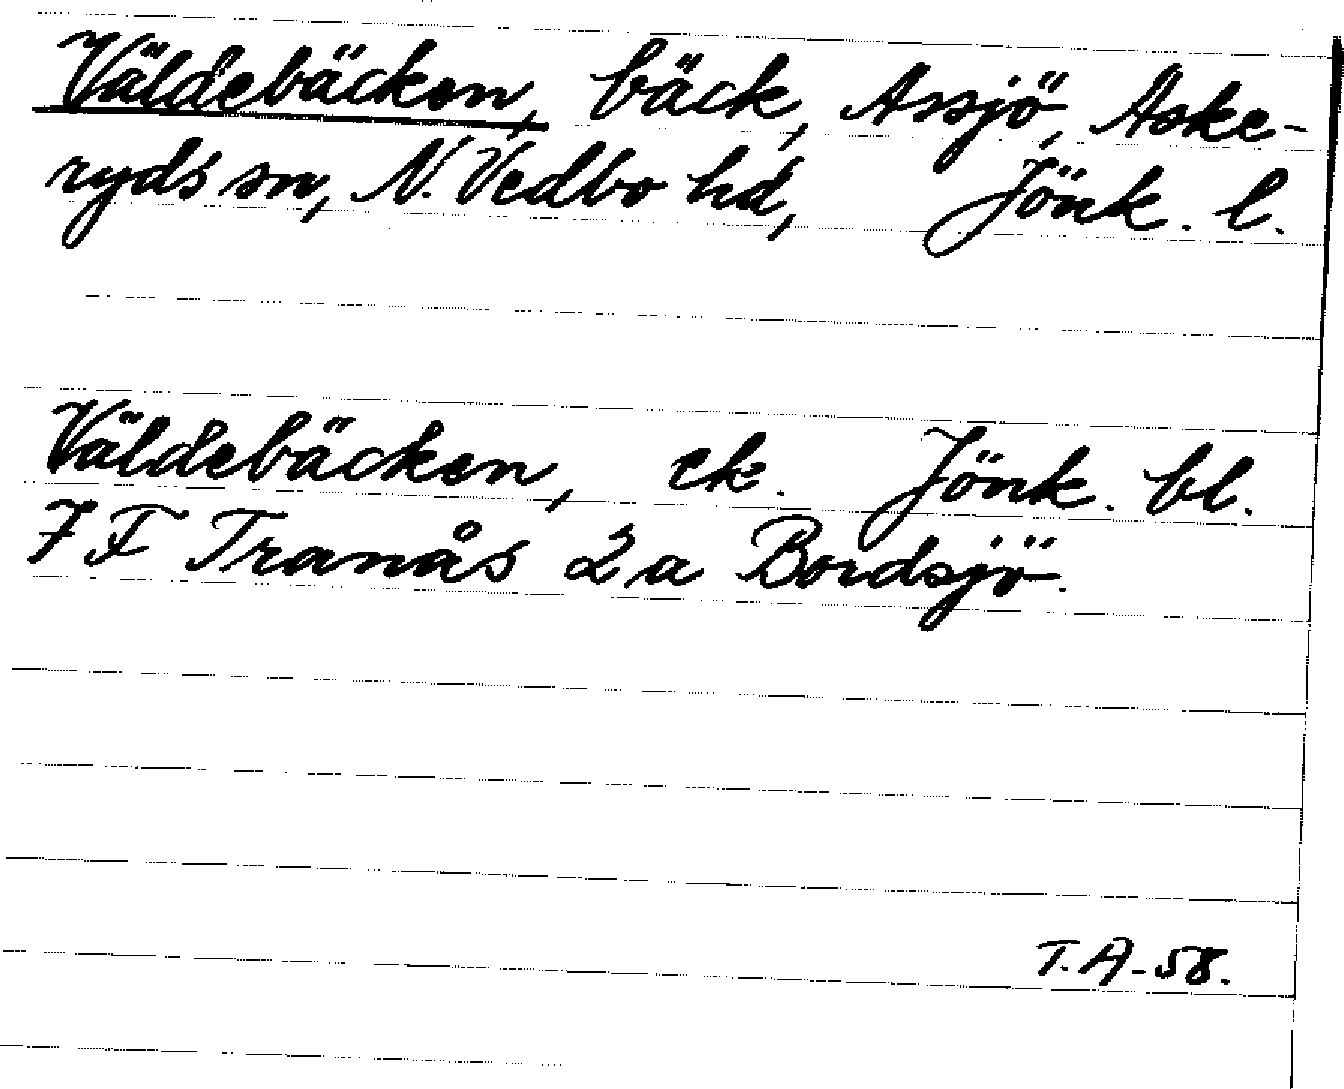 Väldebäcken, bäck, Assjö, Aske-
ryds sn, N. Vedbo hd, Jönk. l.
Väldebäcken, ek. Jönk. bl.
7 F Tranås 2 a Bordsjö.
T. A-58.